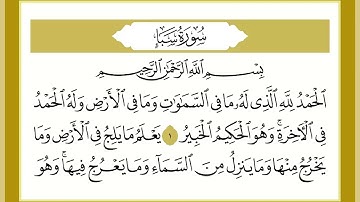 سُورَةُ سَبَإٍ
بِسْمِ اللَّهِ الرَّحْمَٰنِ الرَّحِيمِ
الْحَمْدُ لِلَّهِ الَّذِي لَهُ مَا فِي السَّمَٰوَٰتِ وَمَا فِي الْأَرْضِ وَلَهُ الْحَمْدُ
فِي الْآخِرَةِ ۚ وَهُوَ الْحَكِيمُ الْخَبِيرُ ١ يَعْلَمُ مَا يَلِجُ فِي الْأَرْضِ وَمَا
يَخْرُجُ مِنْهَا وَمَا يَنزِلُ مِنَ السَّمَآءِ وَمَا يَعْرُجُ فِيهَا ۚ وَهُوَ